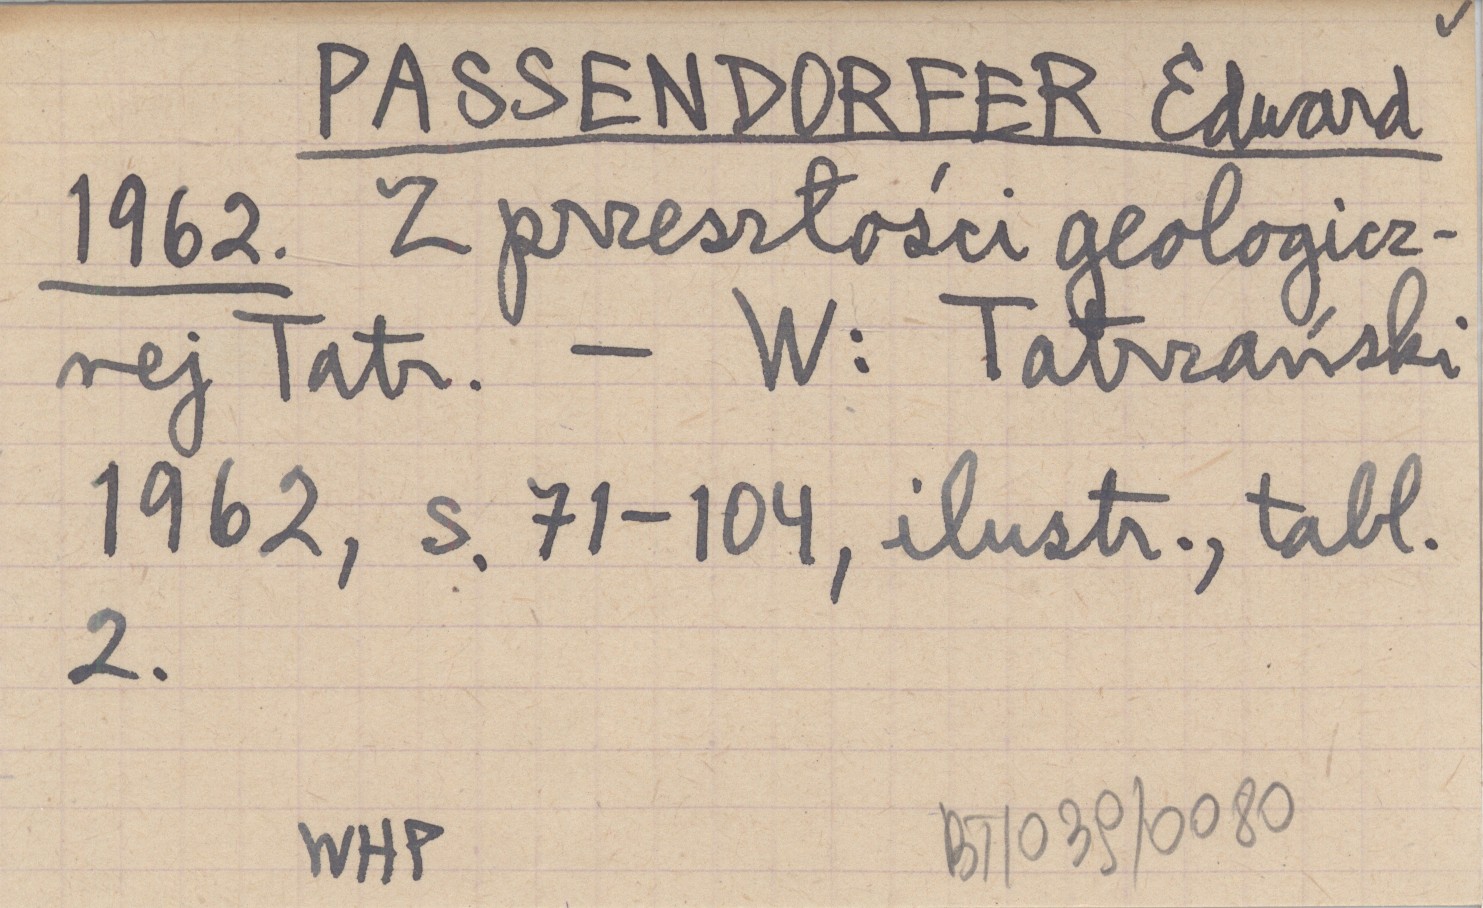 PASSENDORFER Edward
1962. Z przeszłości geologicz-
nej Tatr. — W: Tatrzański
1962, s. 71-104, ilustr., tabl.
2.
WHP
BT/039/0080